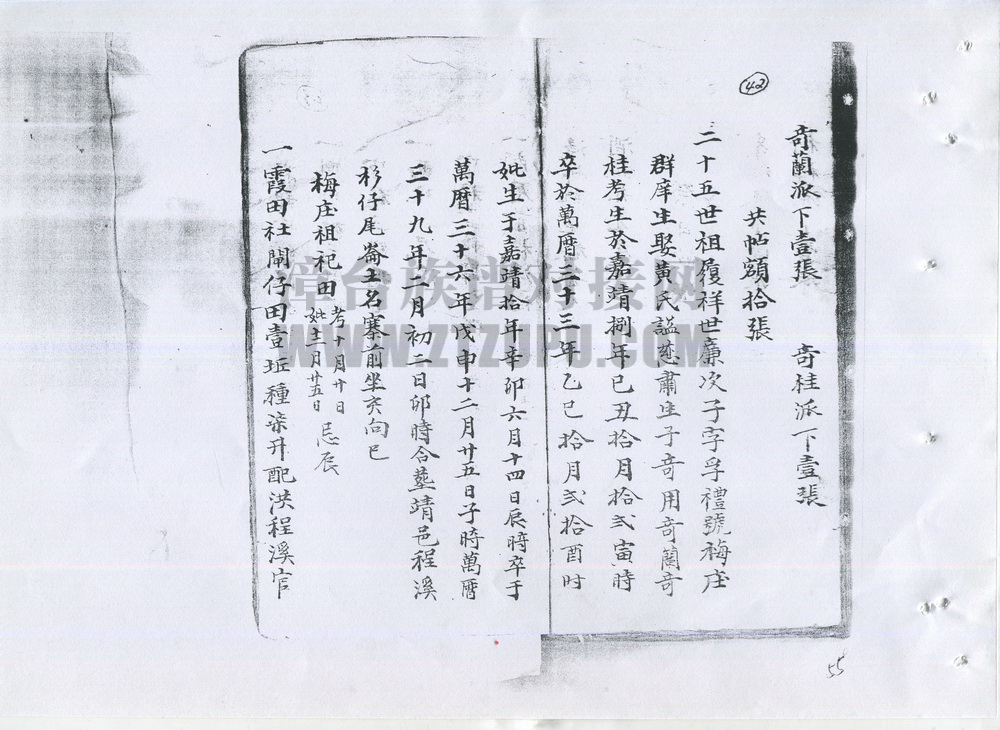 奇蘭派下壹張　奇桂派下壹張
共帖額拾張
二十五世祖履祥世廉次子字孚禮號梅庄
群庠生娶黃氏諡慈肅生子奇用奇蘭奇
桂考生於嘉靖捌年已丑拾月拾弍寅時
卒於萬曆三十三年乙巳拾月弍拾酉时
妣生于嘉靖拾年辛卯六月十四日辰時卒于
萬曆三十六年戊申十二月廿五日子時萬曆
三十九年二月初二日卯時合塟靖邑程溪
衫仔尾崙土名寨前坐亥向巳
梅庄祖祀田 考十月廿日 妣十二月廿五日 忌辰
一霞田社閘仔田壹坵種柒升配洪程溪官
42
55
漳台族谱对接网
WWW.ZTZUPU.COM